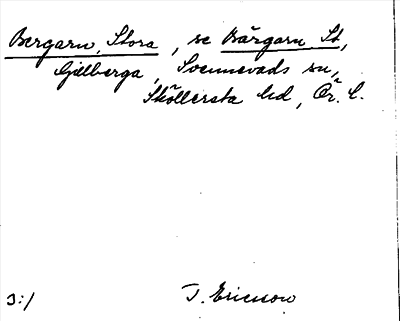 Bergarn, Stora, se Bärgarn St,
Gällberga, Svennevads sn,
Sköllersta hd, Ör. l.
J:/
T. Ericsson